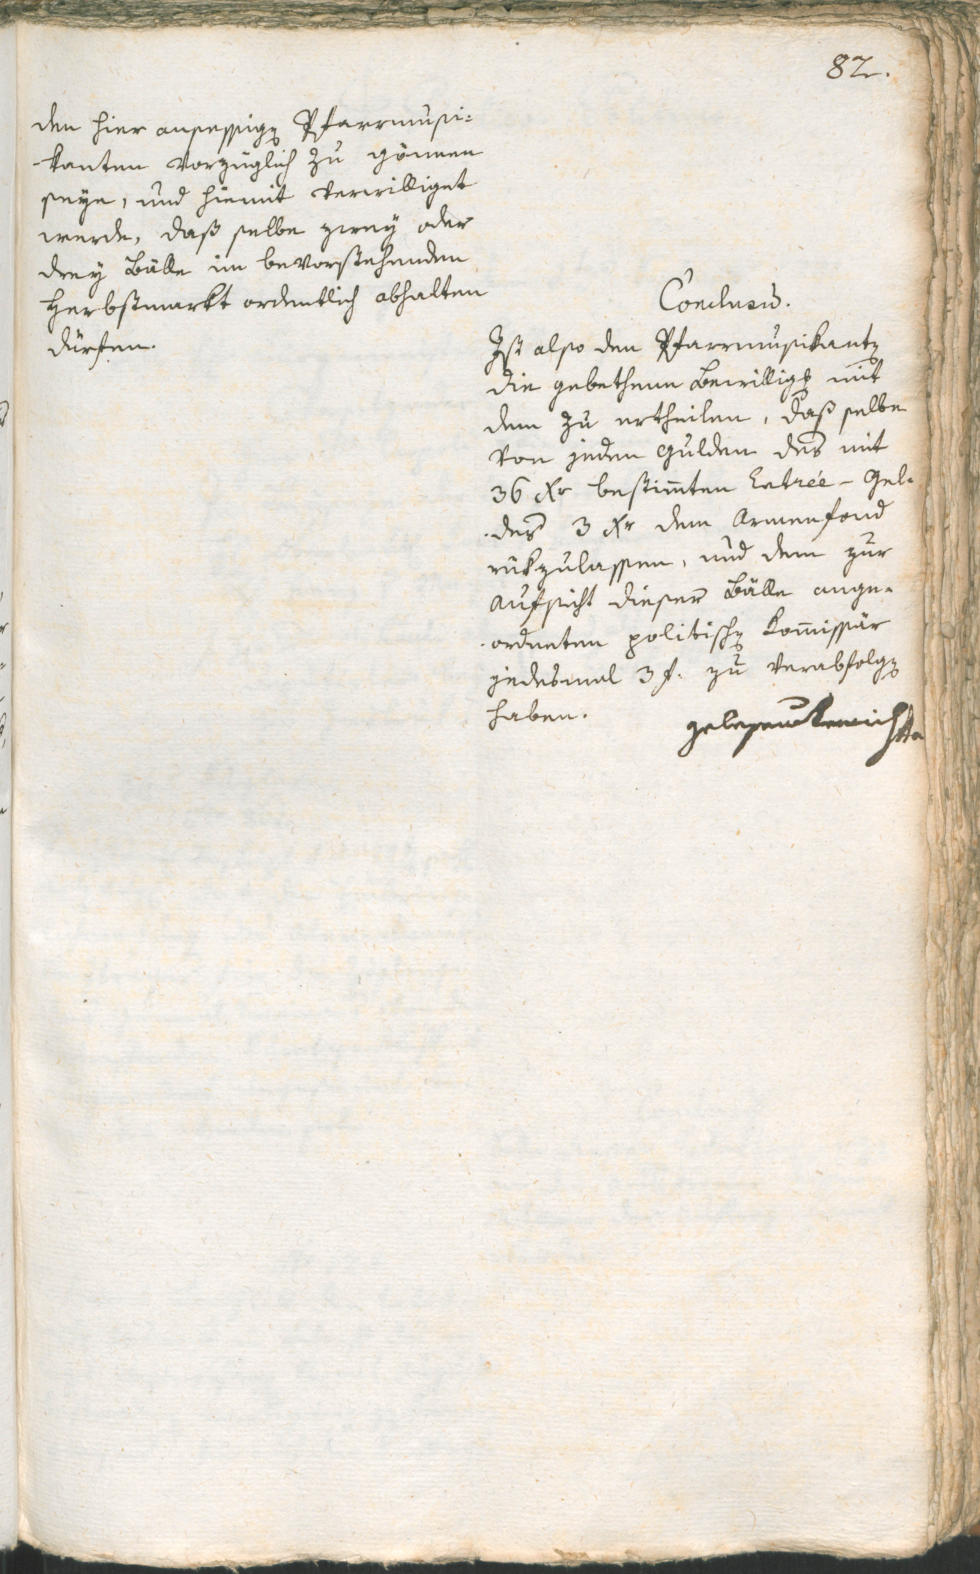 82.
den hier ansessigen Pfarrmusi=
kanten vorzüglich zu gönnen
seye, und hiemit verwilliget
werde, daß selbe zwey oder
drey Bälle im bevorstehenden
Herbstmarkt ordentlich abhalten
dürfen.
Conclusū.
Ist also den Pfarrmusikanten
die gebethene Bewilligg mit
dem zu ertheilen, daß selbe
von jeden Gulden des mit
36 Xr bestim̄ten Entrée-Gel-
des 3 Xr dem Armenfond
rükzulassen, und dem zur
Aufsicht dieser Bälle ange-
ordneten politischen Kom̄issär
jedesmal 3 f. zu verabfolgen
haben.
gelesen